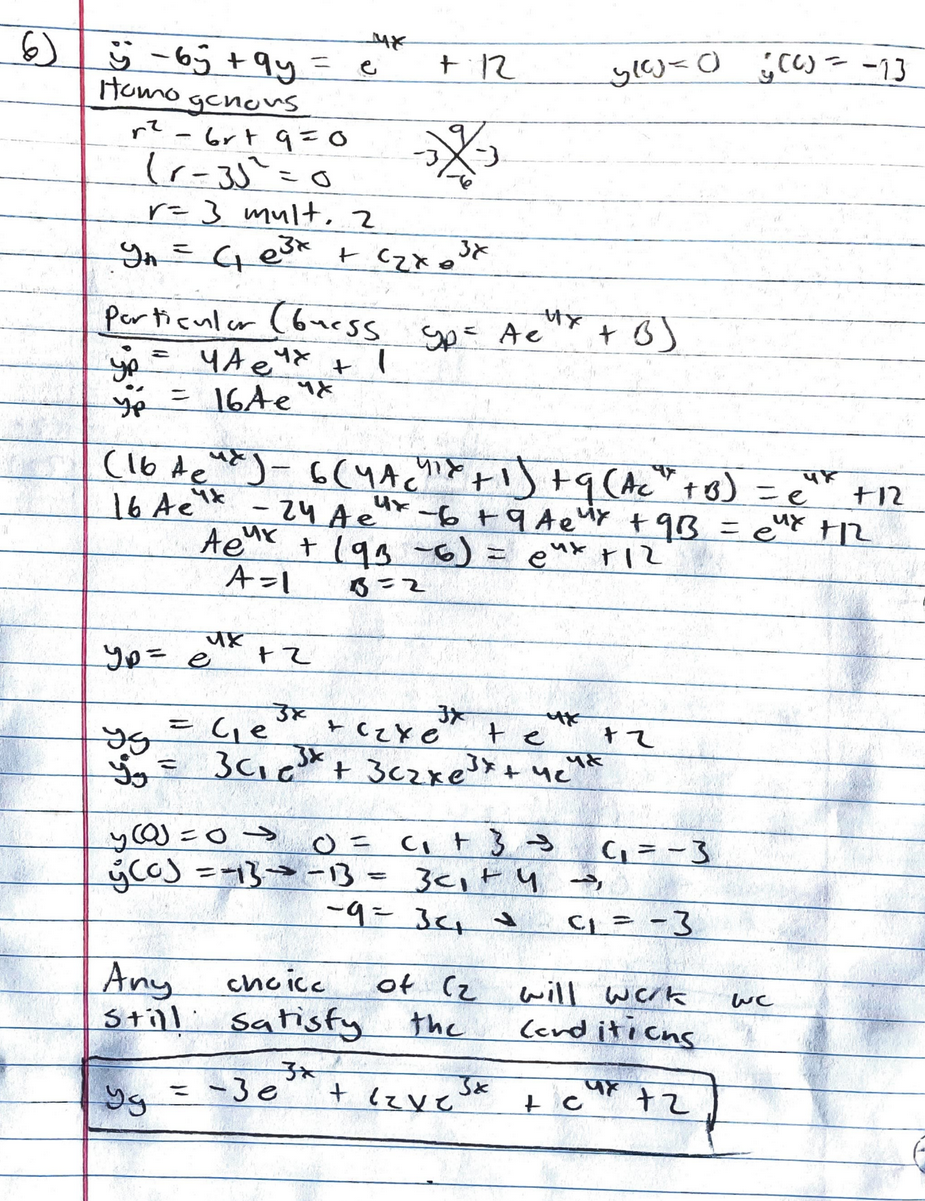 6) ÿ - 6ẏ + 9y = e^4x + 12 y(0) = 0 ẏ(0) = -13
Homogenous
r² - 6r + 9 = 0 9
(r - 3)² = 0 -3 -3
-6
r = 3 mult. 2
yₕ = c₁e^3x + c₂xe^3x
Particular (Guess yp = Ae^4x + B)
ẏp = 4Ae^4x + 1
ÿp = 16Ae^4x
(16Ae^4x) - 6(4Ae^4x + 1) + 9(Ae^4x + B) = e^4x + 12
16Ae^4x - 24Ae^4x - 6 + 9Ae^4x + 9B = e^4x + 12
Ae^4x + (9B - 6) = e^4x + 12
A = 1 B = 2
yp = e^4x + 2
yg = c₁e^3x + c₂xe^3x + e^4x + 2
ẏg = 3c₁e^3x + 3c₂xe^3x + 4e^4x
y(0) = 0 → 0 = c₁ + 3 → c₁ = -3
ẏ(0) = -13 → -13 = 3c₁ + 4 →
-9 = 3c₁ → c₁ = -3
Any choice of c₂ will work we
still satisfy the conditions
yg = -3e^3x + c₂xe^3x + e^4x + 2